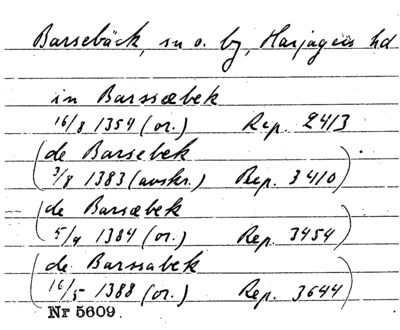 Barsebäck, sn o. by, Harjagers hd
in Barssæbek
16/8 1354 (or.) Rep. 2413
(de Barsebek
3/8 1383 (avskr.) Rep. 3410).
(de Barsæbek
5/4 1384 (or.) Rep. 3454)
(de Barssabek
16/5 1388 (or.) Rep. 3644)
Nr 5609.